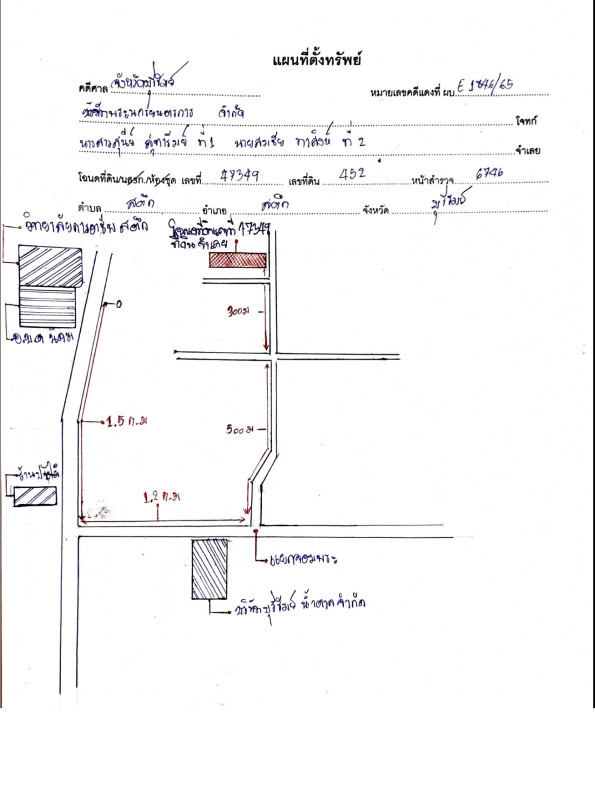 แผนที่ตั้งทรัพย์
คดีศาล จังหวัดบุรีรัมย์ หมายเลขคดีแดงที่ ผบ. E 1846/65
บริษัทพระนครยนตรการ จำกัด โจทก์
ที่ 1 ที่ 2 จำเลย
โฉนดที่ดิน/นสธก./ห้องชุด เลขที่ 47349 เลขที่ดิน 452 หน้าสำรวจ 6746
ตำบล สตึก อำเภอ สตึก จังหวัด บุรีรัมย์
วิทยาลัยการอาชีพ สตึก
โฉนดที่ดินเลขที่ 47349
ที่ดินจำเลย
0
300 ม
อบต นิคม
1.5 ก.ม
500 ม
1.2 ก.ม
แยกจอมพระ
บริษัทบุรีรัมย์ น้ำตาล จำกัด